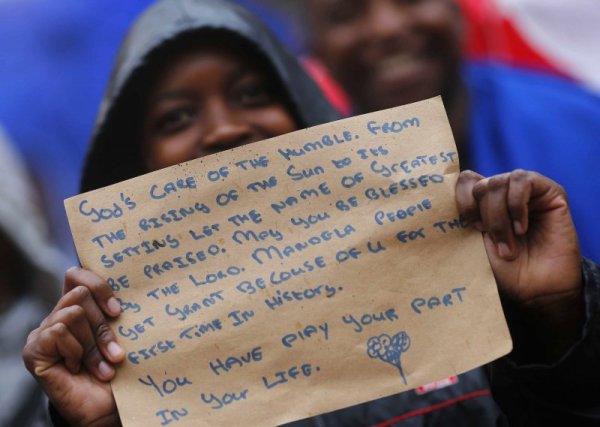 God's CARE OF THE HUMBLE. FROM
THE RISING OF THE SUN to ITS
SETTING LET THE NAME OF GREATEST
BE PRAISED. MAY YOU BE BLESSED
By THE LORD. MANDELA PEOPLE
GET GRANT BECOUSE OF U FOR THE
FIRST TIME IN HISTORY.
YOU HAVE PlAY YOUR PART
IN YOUR LIFE.